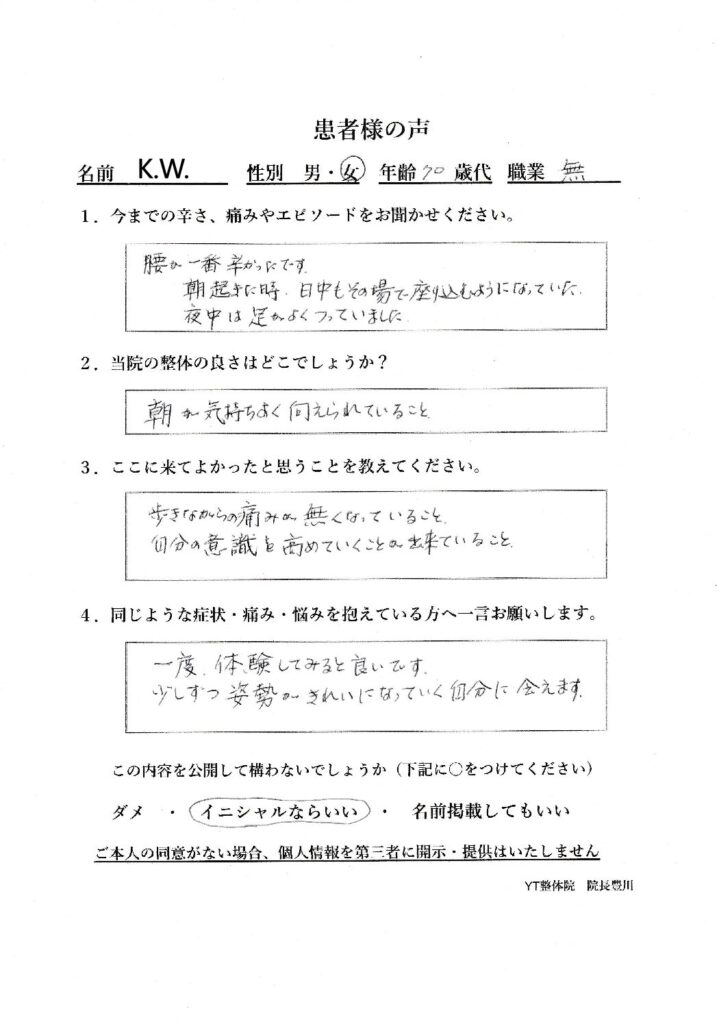 患者様の声
名前 K.W. 性別 男・女 年齢 70 歳代 職業 無
1．今までの辛さ、痛みやエピソードをお聞かせください。
腰が一番辛かったです。
朝起きた時、日中もその場で座り込むようになっていた。
夜中は足がよくつっていました
2．当院の整体の良さはどこでしょうか？
朝が気持ちよく向えられていること
3．ここに来てよかったと思うことを教えてください。
歩きながらの痛みが無くなっていること、
自分の意識を高めていくことが出来ていること、
4．同じような症状・痛み・悩みを抱えている方へ一言お願いします。
一度、体験してみると良いです。
少しずつ姿勢がきれいになっていく自分に会えます。
この内容を公開して構わないでしょうか（下記に〇をつけてください）
ダメ ・ イニシャルならいい ・ 名前掲載してもいい
ご本人の同意がない場合、個人情報を第三者に開示・提供はいたしません
YT整体院 院長豊川